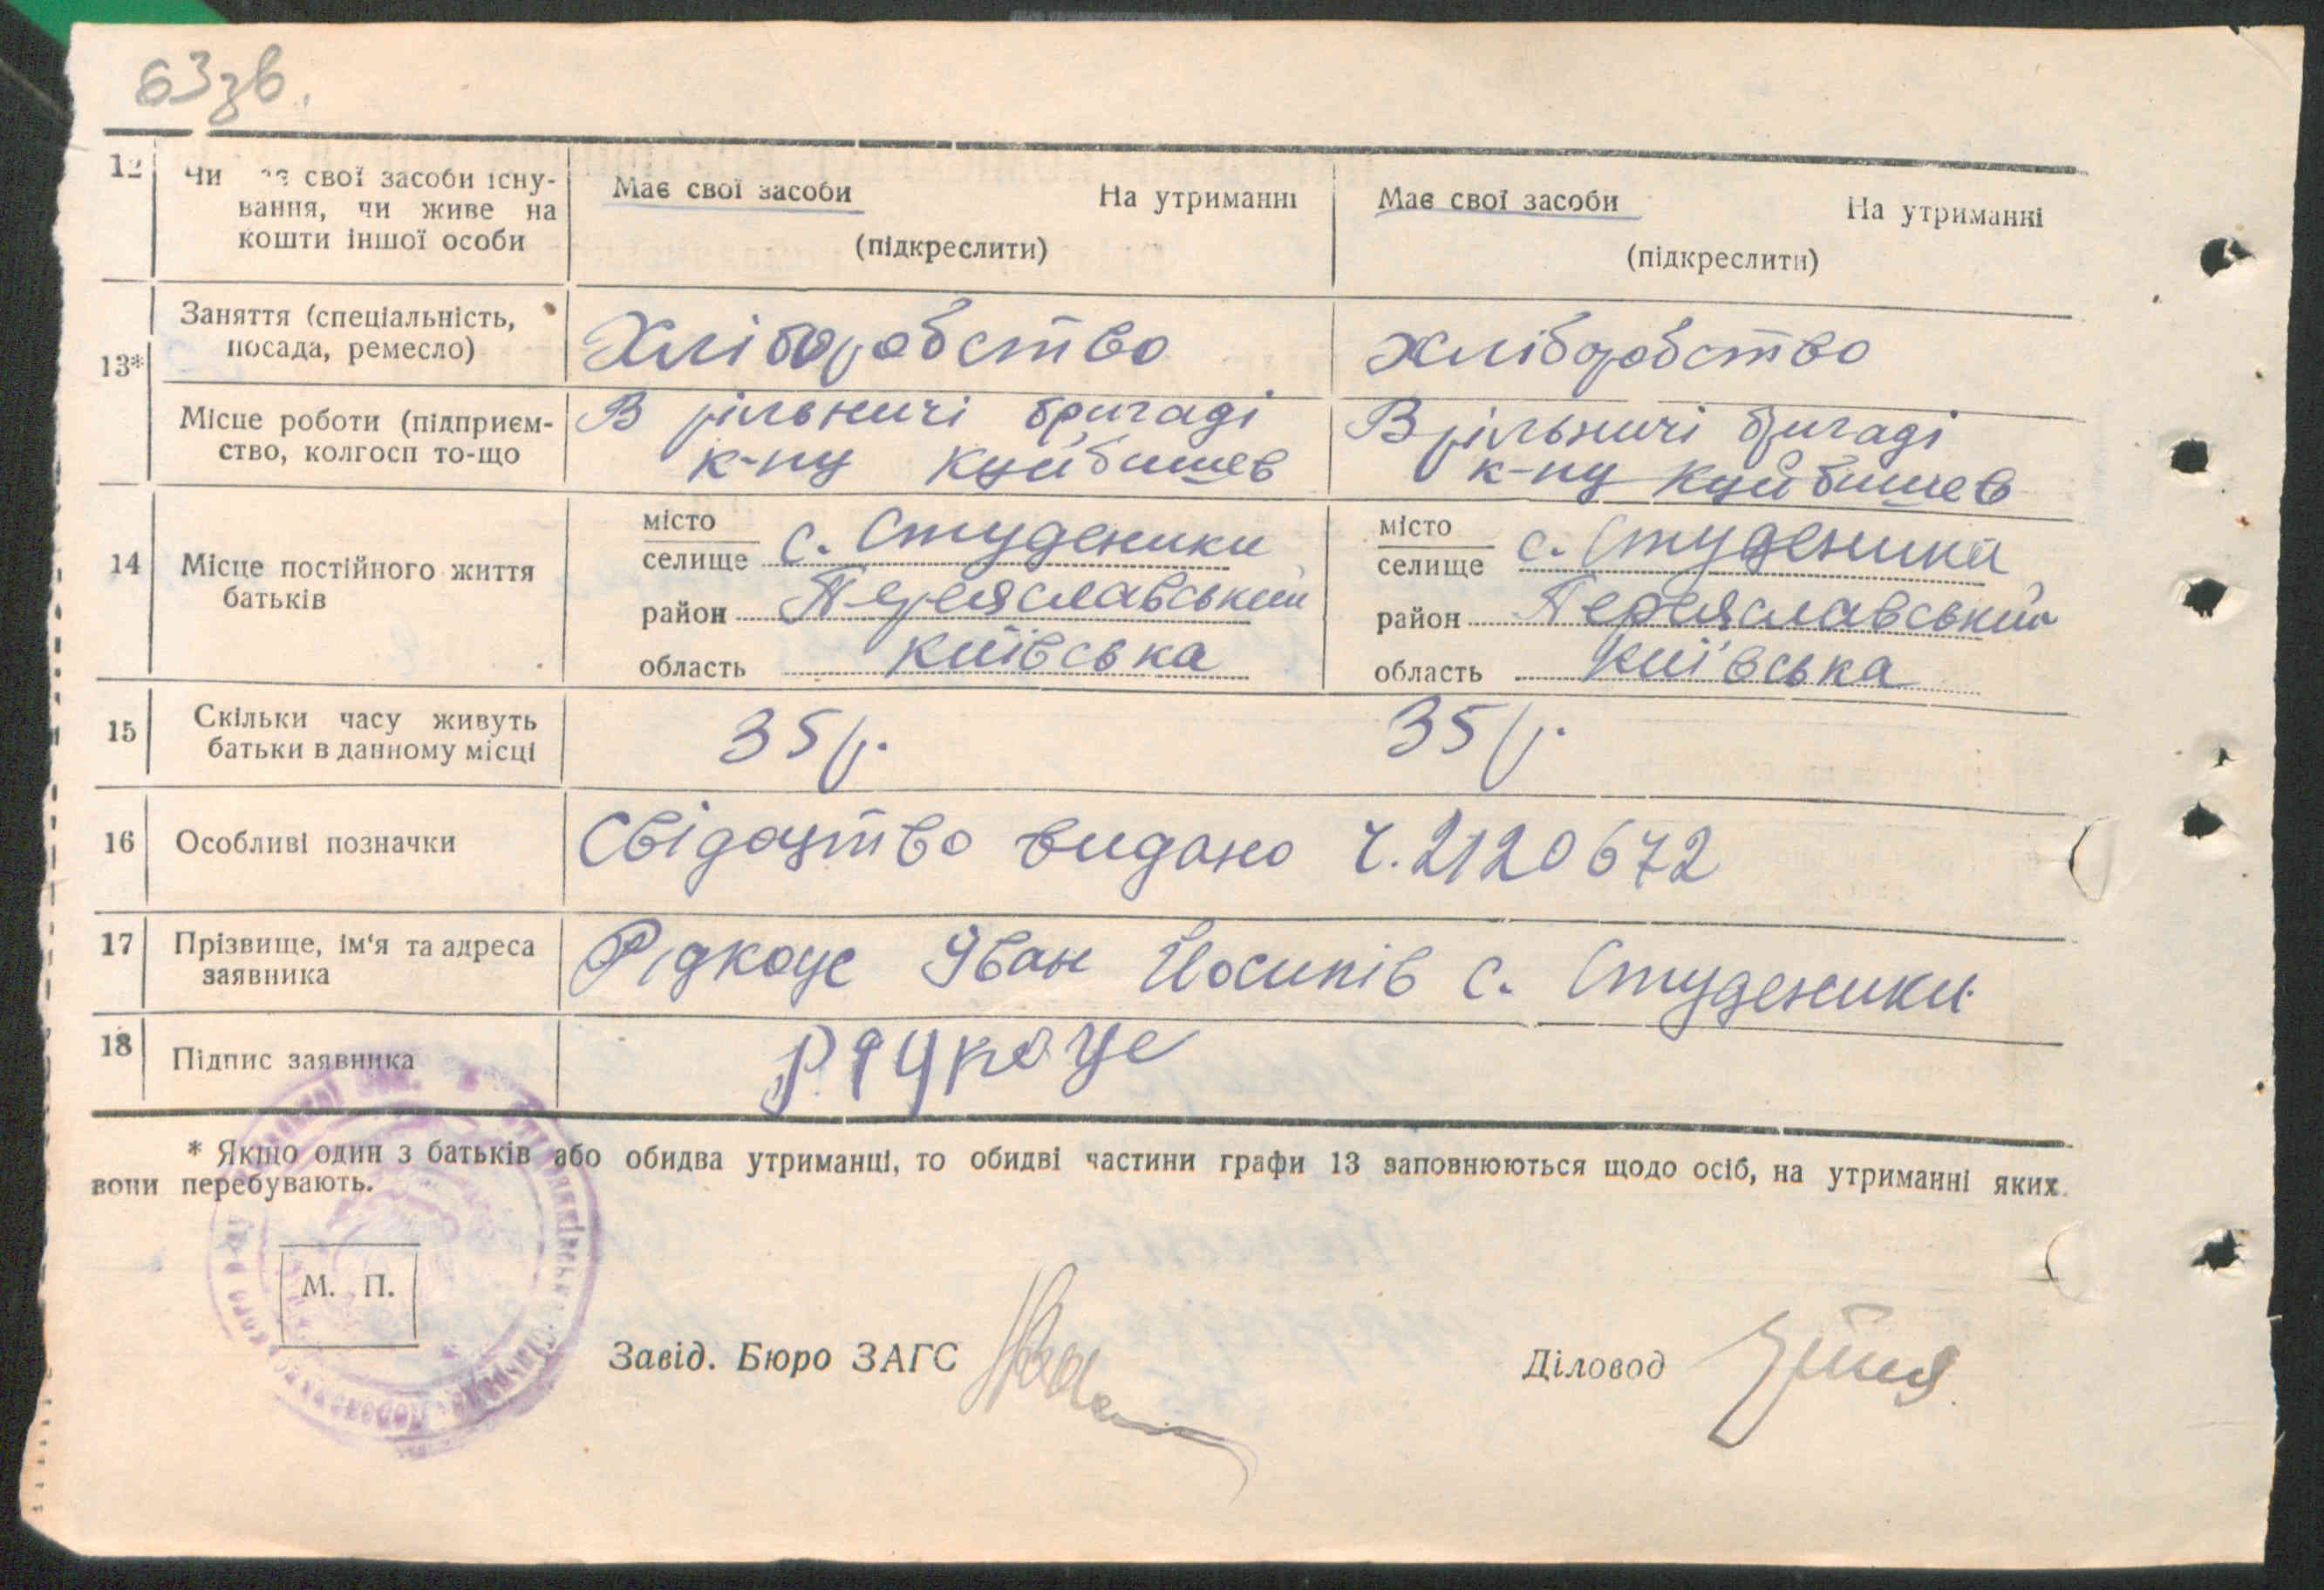 63зв.
12 Чи має свої засоби існу- Має свої засоби На утриманні Має свої засоби На утриманні
вання, чи живе на
кошти іншої особи (підкреслити) (підкреслити)
13* Заняття (спеціальність, Хліборобство Хліборобство
посада, ремесло)
Місце роботи (підприєм- В рільничі бригаді В рільничі бригаді
ство, колгосп то-що к-пу Куйбишев к-пу Куйбишев
14 Місце постійного життя батьків
місто селище с. Студеники місто селище с. Студеники
район Переяславський район Переяславський
область Київська область Київська
15 Скільки часу живуть 35 р. 35 р.
батьки в данному місці
16 Особливі позначки Свідоцтво видано ч. 2120672
17 Прізвище, ім'я та адреса Рідкоус Яван Йосипів с. Студеники
заявника
18 Підпис заявника
* Якщо один з батьків або обидва утриманці, то обидві частини графи 13 заповнюються щодо осіб, на утриманні яких
вони перебувають.
М. П.
Завід. Бюро ЗАГС Діловод